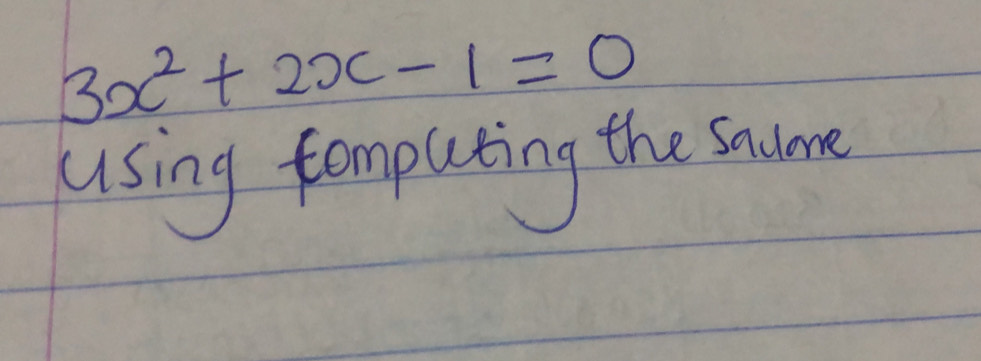 3x² + 2x - 1 = 0
using completing the square